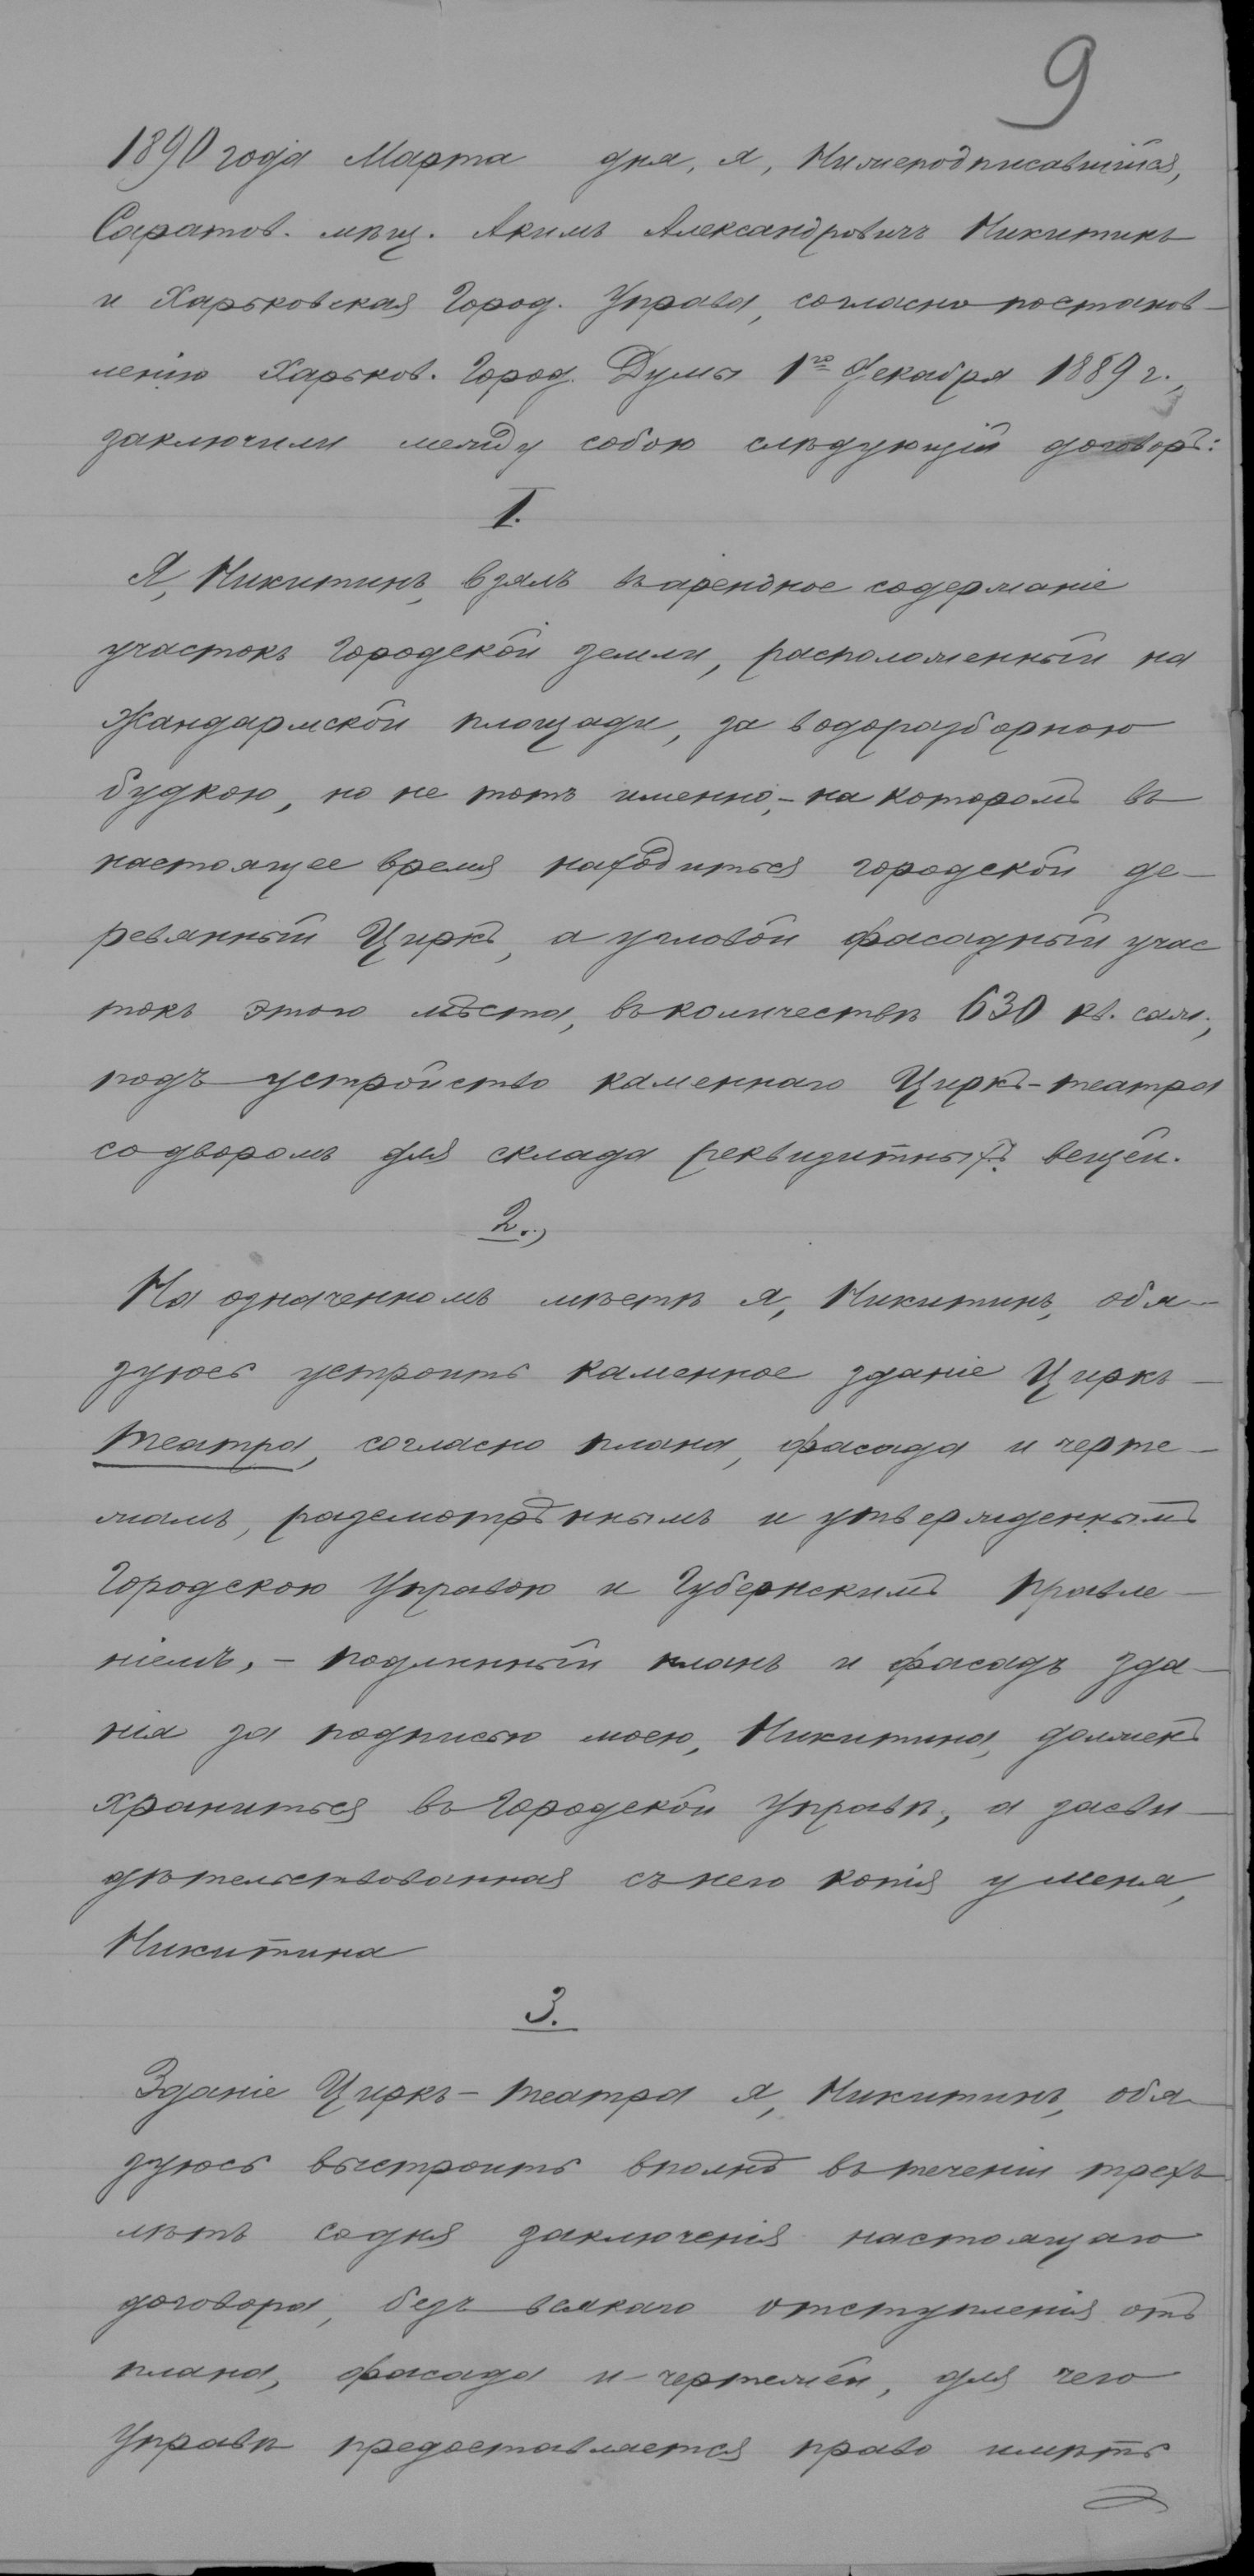 9
1890 года Марта дня, я, Нижеподписавшійся,
Саратов. мѣщ. Акимъ Александровичъ Никитинъ
и Харьковская Город. Управа, согласно постанов-
ленію Харьков. Город. Думы 1го Декабря 1889 г.,
заключили между собою слѣдующій договоръ:
1.
Я, Никитинъ, взялъ въ арендное содержаніе
участокъ Городской земли, расположенный на
Жандармской площади, за водоразборною
будкою, но не тотъ именно,- на которомъ въ
настоящее время находиться городской де-
ревянный Циркъ, а угловой фасадный учас
токъ этого мѣста, въ количествѣ 630 кв. саж.,
подъ устройство каменнаго Циркъ-театра
со дворомъ для склада реквизитныхъ вещей.
2.,
На означенномъ мѣстѣ я, Никитинъ, обя-
зуюсь устроить каменное зданіе Циркъ-
театра, согласно плана, фасада и черте-
жамъ, разсмотрѣннымъ и утвержденнымъ
Городскою Управою и Губернскимъ Правле-
ніемъ, - подлинный планъ и фасадъ зда-
нія за подписью моею, Никитина, долженъ
храниться въ Городской Управѣ, а засви-
дѣтельствованная съ него копія у меня,
Никитина
3.
Зданіе Циркъ-театра я, Никитинъ, обя-
зуюсь выстроить вполнѣ въ теченіи трехъ
лѣтъ со дня заключенія настоящаго
договора, безъ всякаго отступленія отъ
плана, фасада и чертежей, для чего
Управѣ предоставляется право имѣть